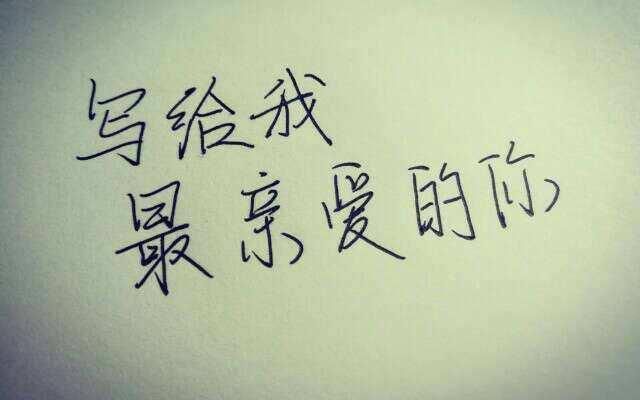 写给我
最亲爱的你